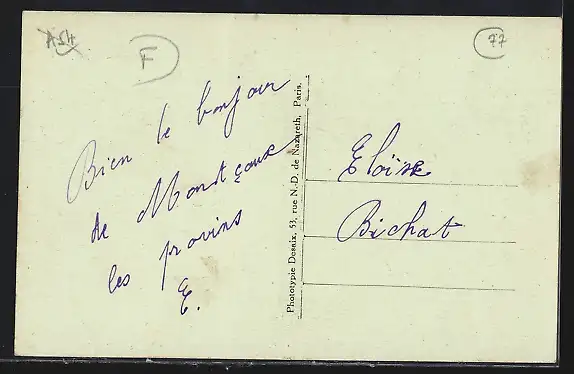 F
77
Bien le bonjour
de Montçeaux
les provins
E.
Phototypie Desaix, 53, rue N.-D. de Nazareth, Paris.
Eloïse
Bichat